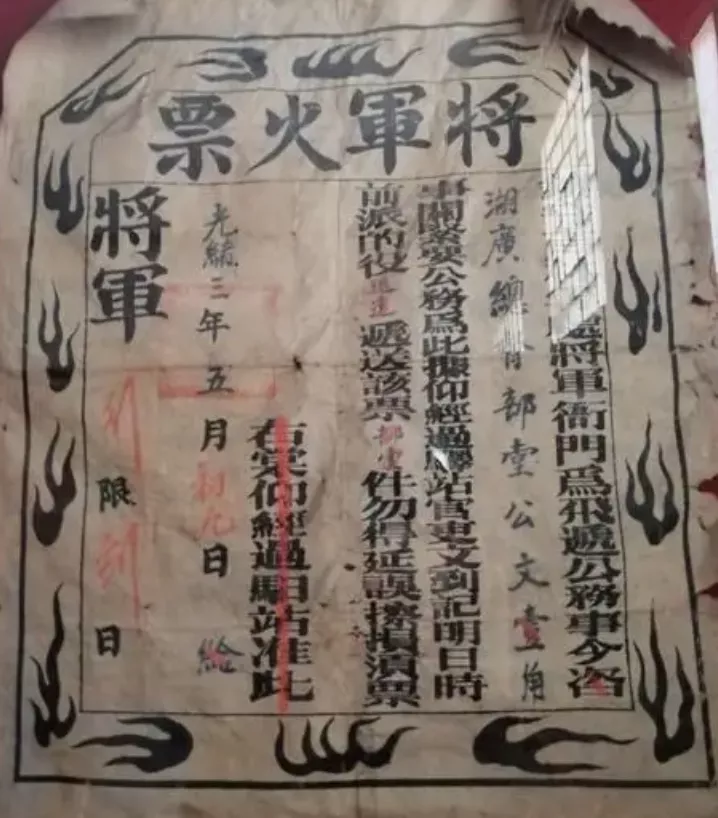 將軍火票
將軍衙門爲飛遞公務事今咨
湖廣總督部堂公文壹角
事關緊要公務爲此擬仰經過驛站官吏文到記明日時
前派的役遞送該票部堂件勿得延誤擦損湏票
右票仰經過驛站准此
光緒三年五月初九日給
將軍
限日